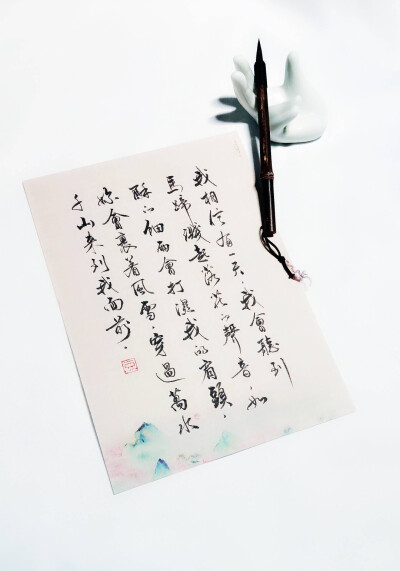 我相信有一天，我會聽到
馬蹄濺起落花的聲音，如
酥的細雨會打濕我的肩頭，
妳會裹著風雪，穿過萬水
千山來到我面前。